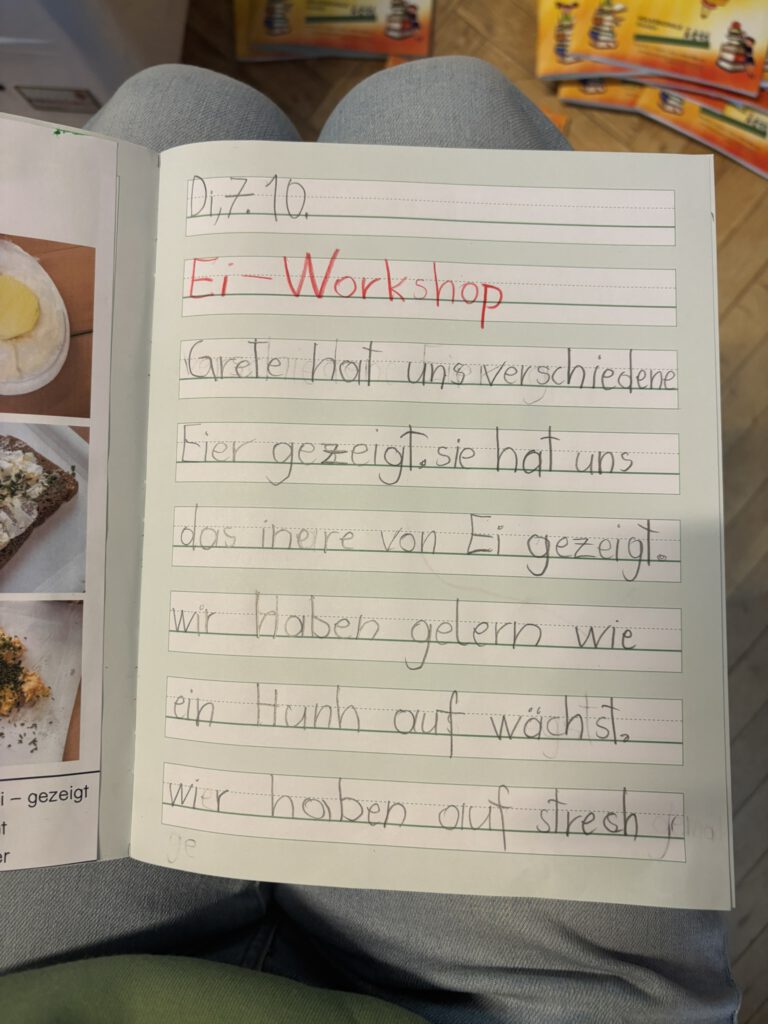 Di, 7. 10.
Ei – Workshop
Grete hat uns verschiedene
Eier gezeigt. sie hat uns
das inere von Ei gezeigt.
wir haben gelern wie
ein Hunh auf wächst.
wier haben auf strech
ge
i – gezeigt
t
er